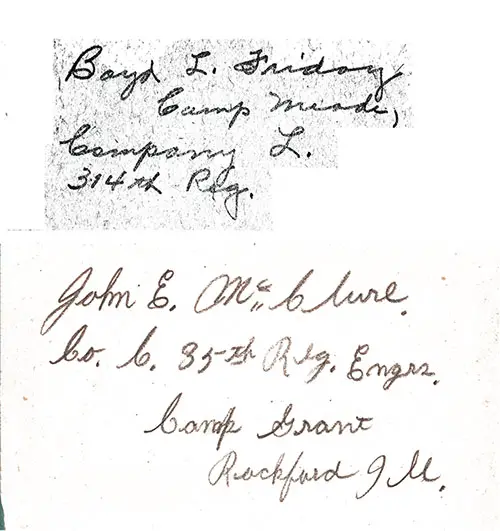 Boyd L. Friday
Camp Meade,
Company L.
314th Reg.
John E. Mc,, Clure.
Co. C. 35-th Reg. Engrs.
Camp Grant
Rockford Ill.